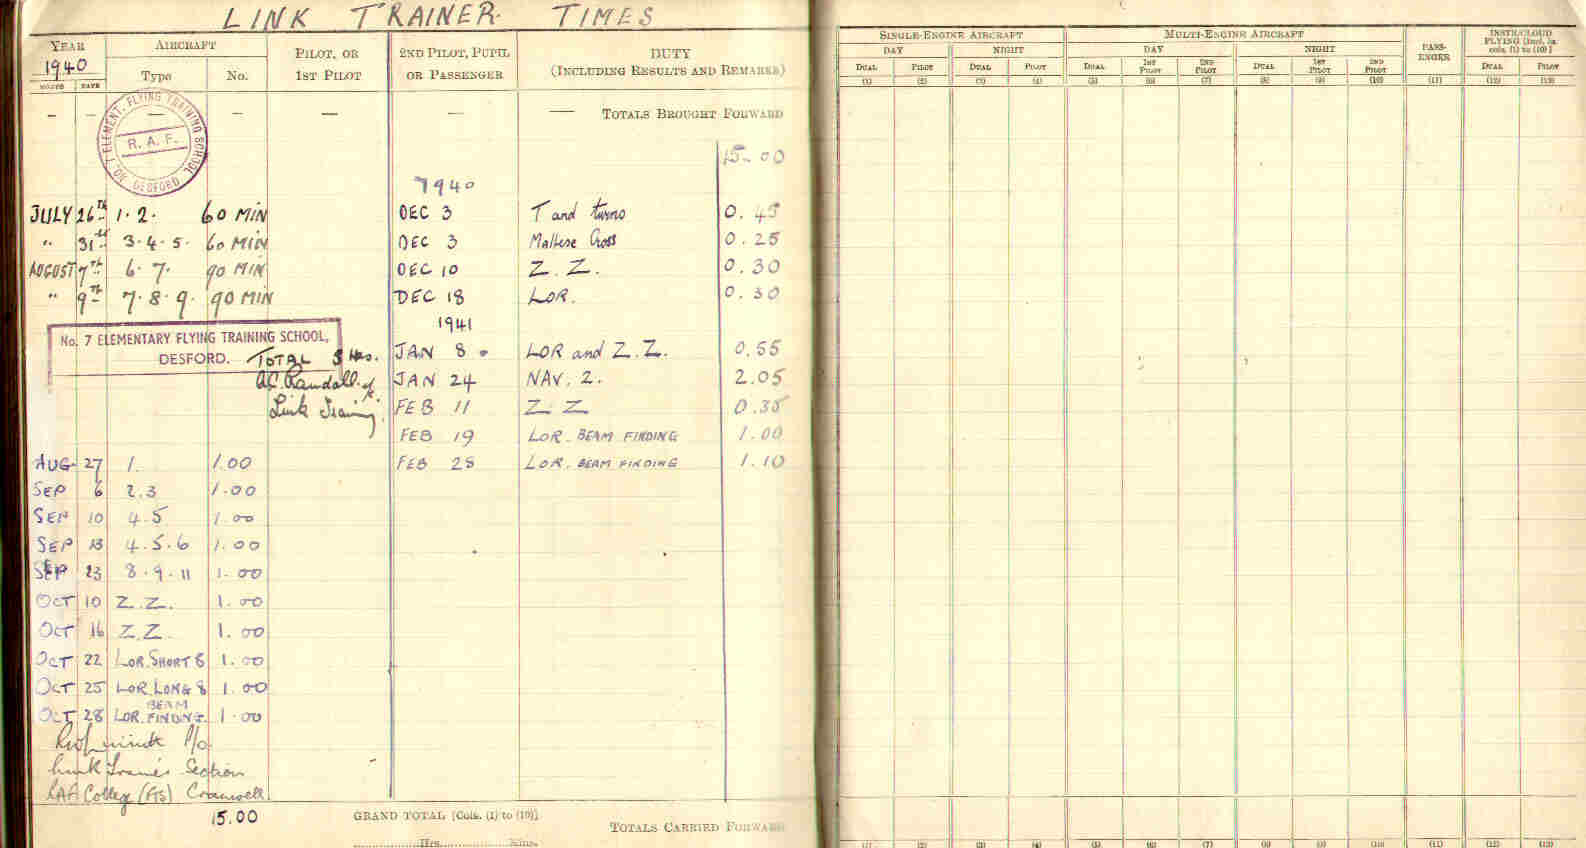 LINK TRAINER TIMES
YEAR 1940
AIRCRAFT
MONTH DATE
Type No.
PILOT, OR
1ST PILOT
2ND PILOT, PUPIL
OR PASSENGER
DUTY
(INCLUDING RESULTS AND REMARKS)
— — — — — — — TOTALS BROUGHT FORWARD
No. 7 ELEMENT. FLYING TRAINING SCHOOL. DESFORD.
R. A. F.
JULY 26TH 1. 2. 60 MIN
" 31st 3. 4. 5. 60 MIN
AUGUST 7TH 6. 7. 90 MIN
" 9TH 7. 8. 9. 90 MIN
No. 7 ELEMENTARY FLYING TRAINING SCHOOL,
DESFORD.
TOTAL 5 Hrs.
A.C. Randall
Link Training
AUG 27 1. 1.00
SEP 6 2.3 1.00
SEP 10 4.5 1.00
SEP 13 4.5.6 1.00
SEP 23 8.9.11 1.00
OCT 10 Z.Z. 1.00
OCT 16 Z.Z. 1.00
OCT 22 LOR. SHORT 8 1.00
OCT 25 LOR. LONG 8 1.00
OCT 28 LOR. BEAM FINDING. 1.00
P/O
Link Trainer Section
RAF College (FTS) Cranwell.
15.00
15.00
1940
DEC 3 T and turns 0.45
DEC 3 Maltese Cross 0.25
DEC 10 Z. Z. 0.30
DEC 18 LOR. 0.30
1941
JAN 8. LOR and Z.Z. 0.55
JAN 24 NAV. 2. 2.05
FEB 11 Z Z 0.35
FEB 19 LOR. BEAM FINDING 1.00
FEB 28 LOR. BEAM FINDING 1.10
GRAND TOTAL [Cols. (1) to (10)]
TOTALS CARRIED FORWARD
Hrs. Mins.
SINGLE-ENGINE AIRCRAFT
MULTI-ENGINE AIRCRAFT
PASS-
ENGER
INSTR/CLOUD
FLYING [Incl. in
cols. (1) to (10)]
DAY NIGHT DAY NIGHT
DUAL PILOT DUAL PILOT DUAL 1ST PILOT 2ND PILOT DUAL 1ST PILOT 2ND PILOT DUAL PILOT
(1) (2) (3) (4) (5) (6) (7) (8) (9) (10) (11) (12) (13)
(1) (2) (3) (4) (5) (6) (7) (8) (9) (10) (11) (12) (13)